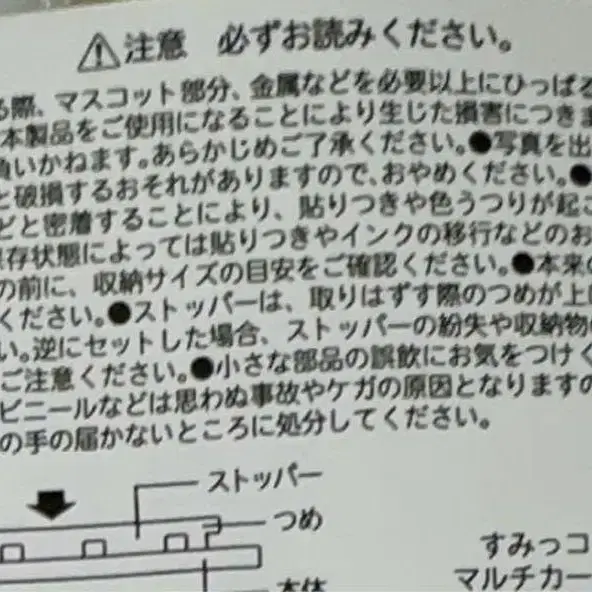 注意 必ずお読みください。
る際、マスコット部分、金属などを必要以上にひっぱる
本製品をご使用になることにより生じた損害につきま
負いかねます。あらかじめご了承ください。●写真を出
と破損するおそれがありますので、おやめください。●
どと密着することにより、貼りつきや色うつりが起こ
保存状態によっては貼りつきやインクの移行などのお
の前に、収納サイズの目安をご確認ください。●本来の
ください。●ストッパーは、取りはずす際のつめが上に
い。逆にセットした場合、ストッパーの紛失や収納物の
ご注意ください。●小さな部品の誤飲にお気をつけく
ビニールなどは思わぬ事故やケガの原因となりますの
の手の届かないところに処分してください。
ストッパー
つめ
本体
すみっコ
マルチカー